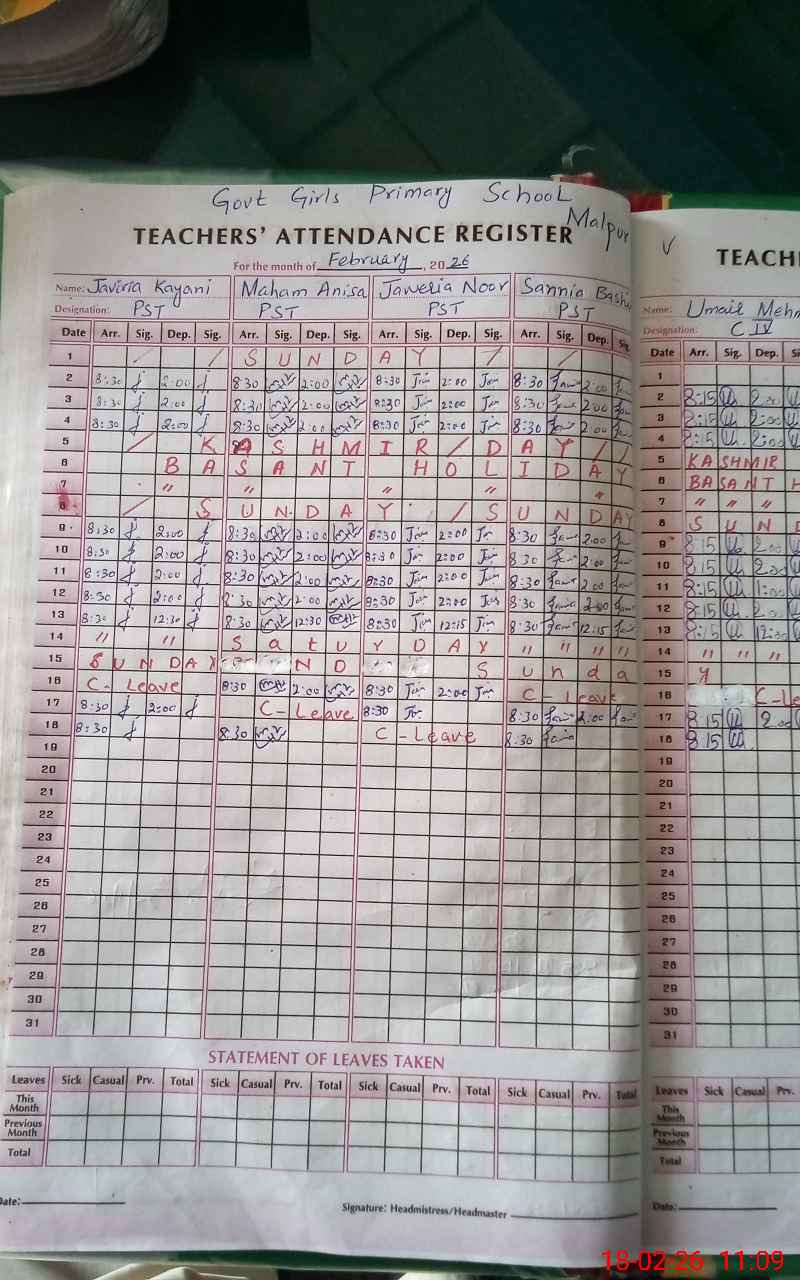 Govt Girls Primary School
Malpur
TEACHERS' ATTENDANCE REGISTER
For the month of February, 2026
Name: Javiria Kayani Maham Anisa Jaweria Noor Sannia Bashi
Designation: PST PST PST PST
Date Arr. Sig. Dep. Sig. Arr. Sig. Dep. Sig. Arr. Sig. Dep. Sig. Arr. Sig. Dep. Sig.
1 / / S U N D A Y / /
2 8:30 2:00 8:30 2:00 8:30 2:00 8:30 2:00
3 8:30 2:00 8:30 2:00 8:30 2:00 8:30 2:00
4 8:30 2:00 8:30 2:00 8:30 2:00 8:30 2:00
5 / K A S H M I R / D A Y / /
6 B A S A N T H O L I D A Y
7 " " " " "
8 / S U N D A Y / S U N D A Y
9 8:30 2:00 8:30 2:00 8:30 2:00 8:30 2:00
10 8:30 2:00 8:30 2:00 8:30 2:00 8:30 2:00
11 8:30 2:00 8:30 2:00 8:30 2:00 8:30 2:00
12 8:30 2:00 8:30 2:00 8:30 2:00 8:30 2:00
13 8:30 12:30 8:30 12:30 8:30 12:15 8:30 12:15
14 " " S a t u r D A Y " " " "
15 S U N D A Y N D S u n d a
16 C- Leave 8:30 2:00 8:30 2:00 C - Leave
17 8:30 2:00 C-Leave 8:30 8:30 2:00
18 8:30 8:30 C - Leave 8:30
19
20
21
22
23
24
25
26
27
28
29
30
31
STATEMENT OF LEAVES TAKEN
Leaves Sick Casual Prv. Total Sick Casual Prv. Total Sick Casual Prv. Total Sick Casual Prv. Total
This Month
Previous Month
Total
Date:
Signature: Headmistress/Headmaster
TEACH
Name: Umair Mehm
Designation: C IV
Date Arr. Sig. Dep. Si
1
2 8:15 2:00
3 8:15 2:00
4 8:15 2:00
5 KASHMIR
6 BASANT H
7 " " "
8 S U N D
9 8:15 2:00
10 8:15 2:00
11 8:15 1:00
12 8:15 2:00
13 8:15 12:
14 " " "
15 y
16 C-Le
17 8:15 2:00
18 8:15
19
20
21
22
23
24
25
26
27
28
29
30
31
Leaves Sick Casual Prv.
This Month
Previous Month
Total
Date:
18-02-26 11:09